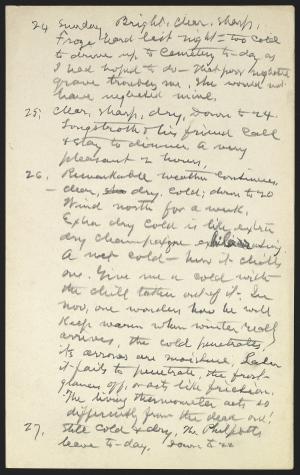 24 Sunday Bright, clear, sharp,
Froze hard last night - too cold
to drive up to Cemetery to-day as
I had hoped to do - that poor neglected
grave troubles me. She would not
have neglected mine.
25; Clear, sharp, dry, Down to 24.
Longstroth & his friend call
& stay to dinner. A very
pleasant 2 hours,
26, Remarkable weather continues,
- clear, dry, cold; down to 20
Wind north for a week.
Extra dry cold is like extra
dry champagne exhilarating.
A wet cold - how it chills
one. Give me a cold with
the chill taken out of it. In
now, one wonders how he will
keep warm when winter really
arrives, the cold penetrates,
its arrows are moisture, Later
it fails to penetrate, the frost
glances off, or acts like friction.
The living thermometer acts so
differently from the dead one!
27, Still cold & dry, the Philpotts
leave to-day. Down to 22